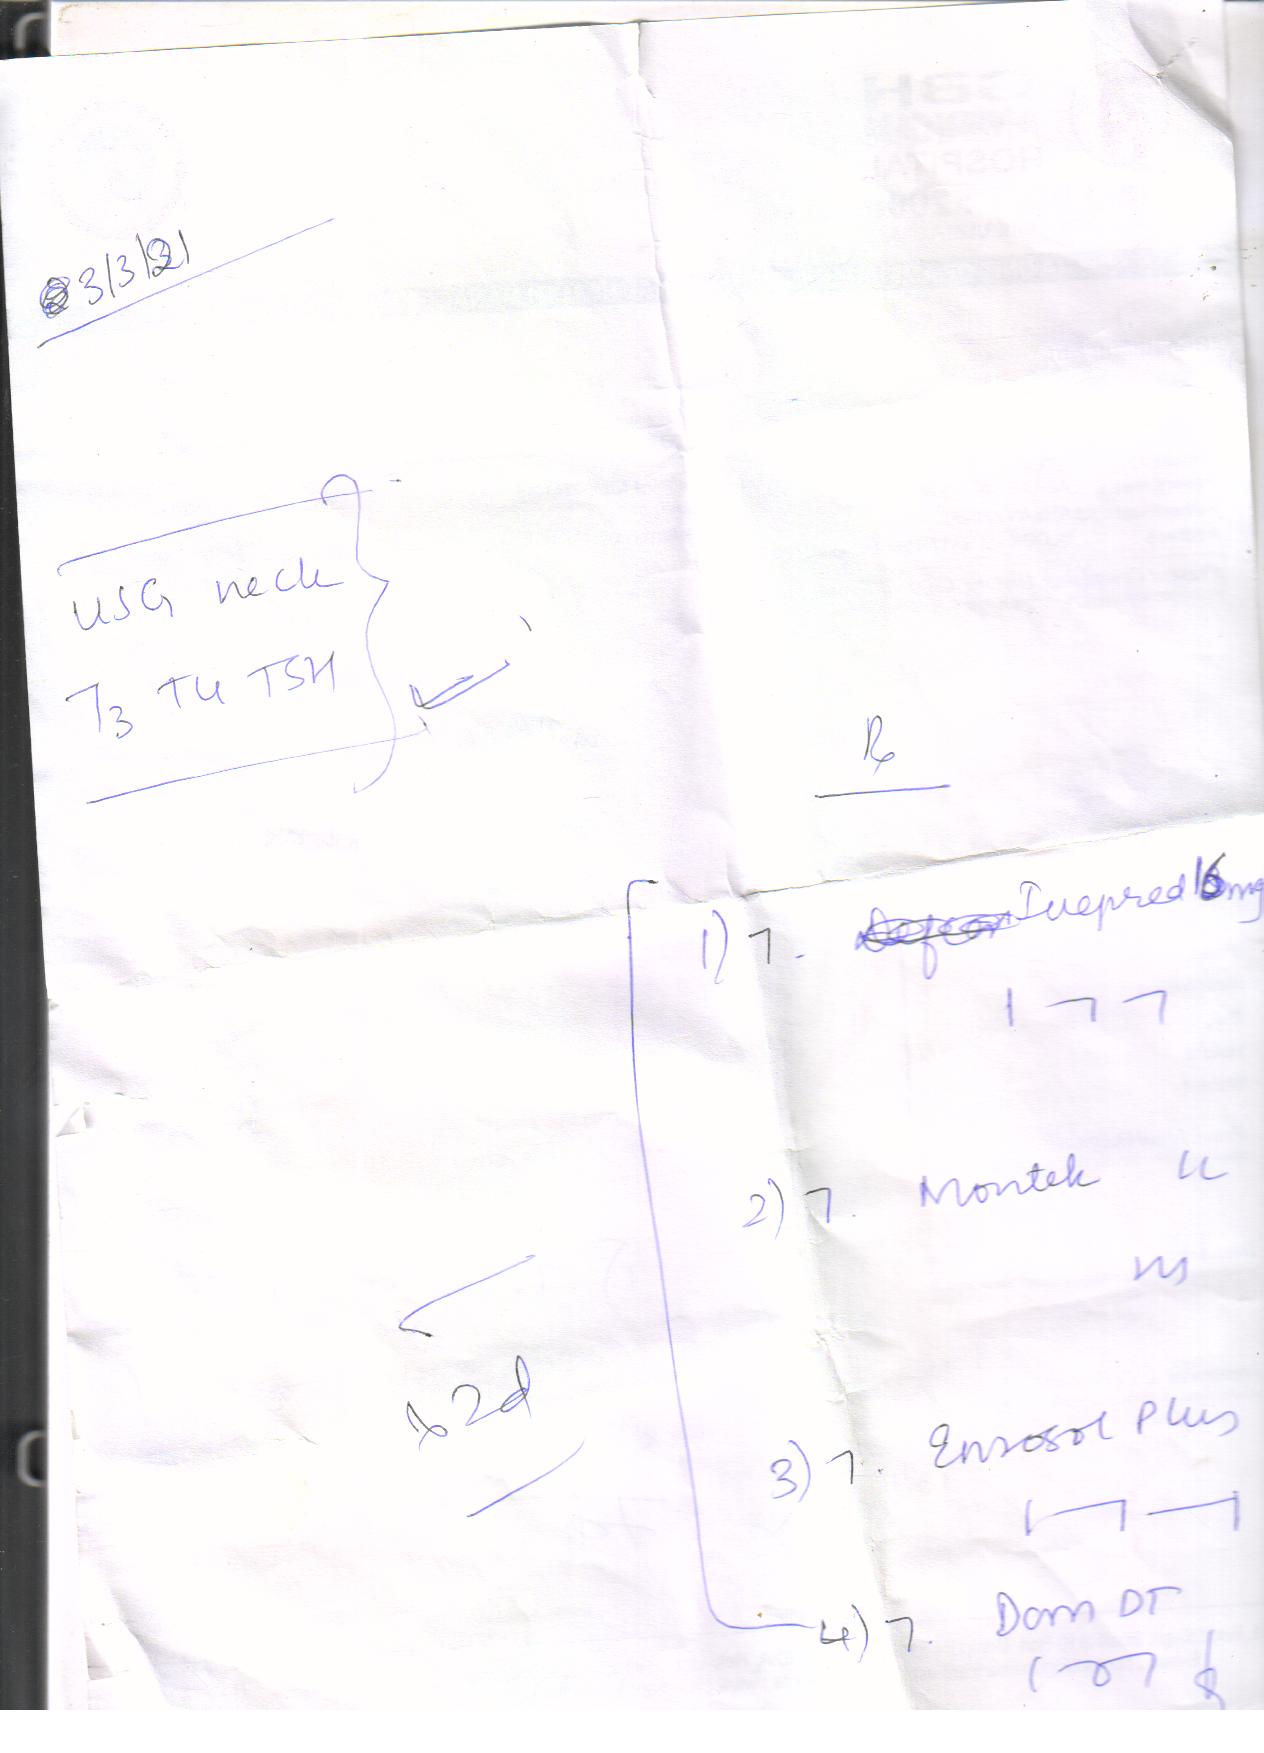 3/3/21
USG neck
T3 T4 TSH
Rx
1) T. Ivepred 16mg
1 - 1 - 1
2) T. Montek LC
HS
3) T. Enzosol Plus
1 - 1 - 1
4) T. Dom DT
1 - 0 - 1
x 2d